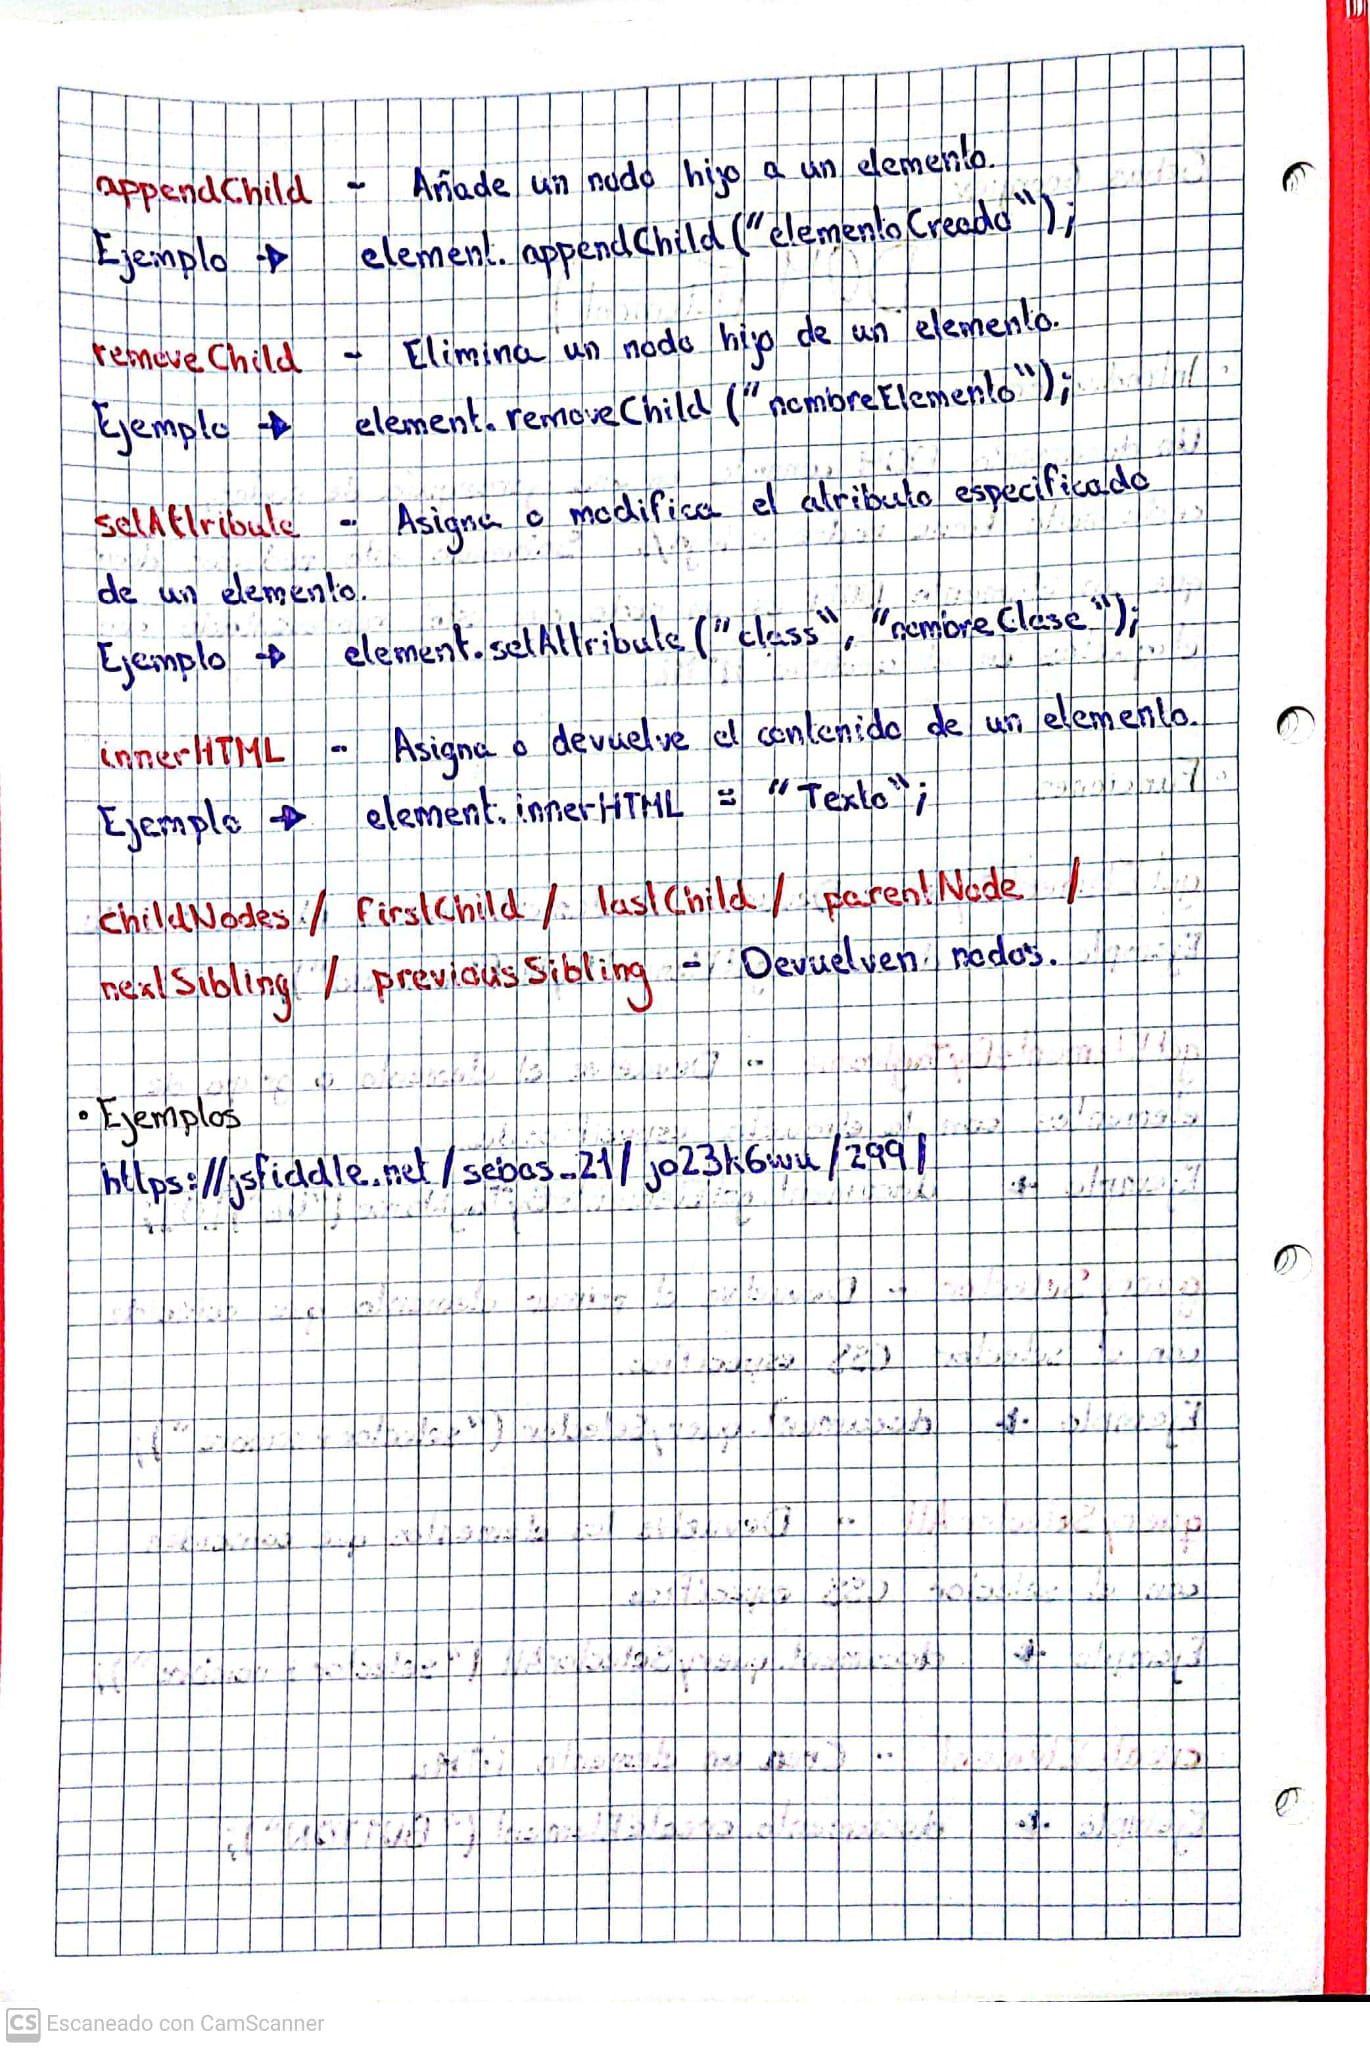 appendChild - Añade un nodo hijo a un elemento.
Ejemplo → element.appendChild("elementoCreado");
removeChild - Elimina un nodo hijo de un elemento.
Ejemplo → element.removeChild("nombreElemento");
setAttribute - Asigna o modifica el atributo especificado
de un elemento.
Ejemplo → element.setAttribute("class", "nombreClase");
innerHTML - Asigna o devuelve el contenido de un elemento.
Ejemplo → element.innerHTML = "Texto";
childNodes / firstChild / lastChild / parentNode /
nextSibling / previousSibling - Devuelven nodos.
• Ejemplos
https://jsfiddle.net/sebas_21/jo23k6wu/299/
CS Escaneado con CamScanner